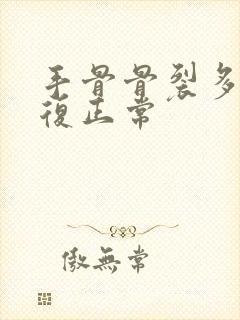 手骨骨裂多
復正常
傲無常